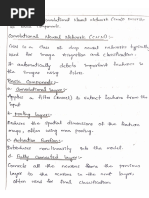 Convolutional Neural Network
its basic components.
Convolutional Neural Network (CNN):
CNN is a class of deep neural networks typically
used for image recognition and classification.
It automatically detects important features in
the images using filters.
Basic Components:
1. Convolutional layer:
Applies a filter (kernel) to extract features from the
input.
2. Pooling layer:
Reduces the spatial dimensions of the feature
maps, often using max pooling.
3. Activation function:
Introduces non-linearity into the model.
4. Fully Connected layer:
Connects all the neurons from the previous
layer to the neurons in the next layer,
often used for final classification.